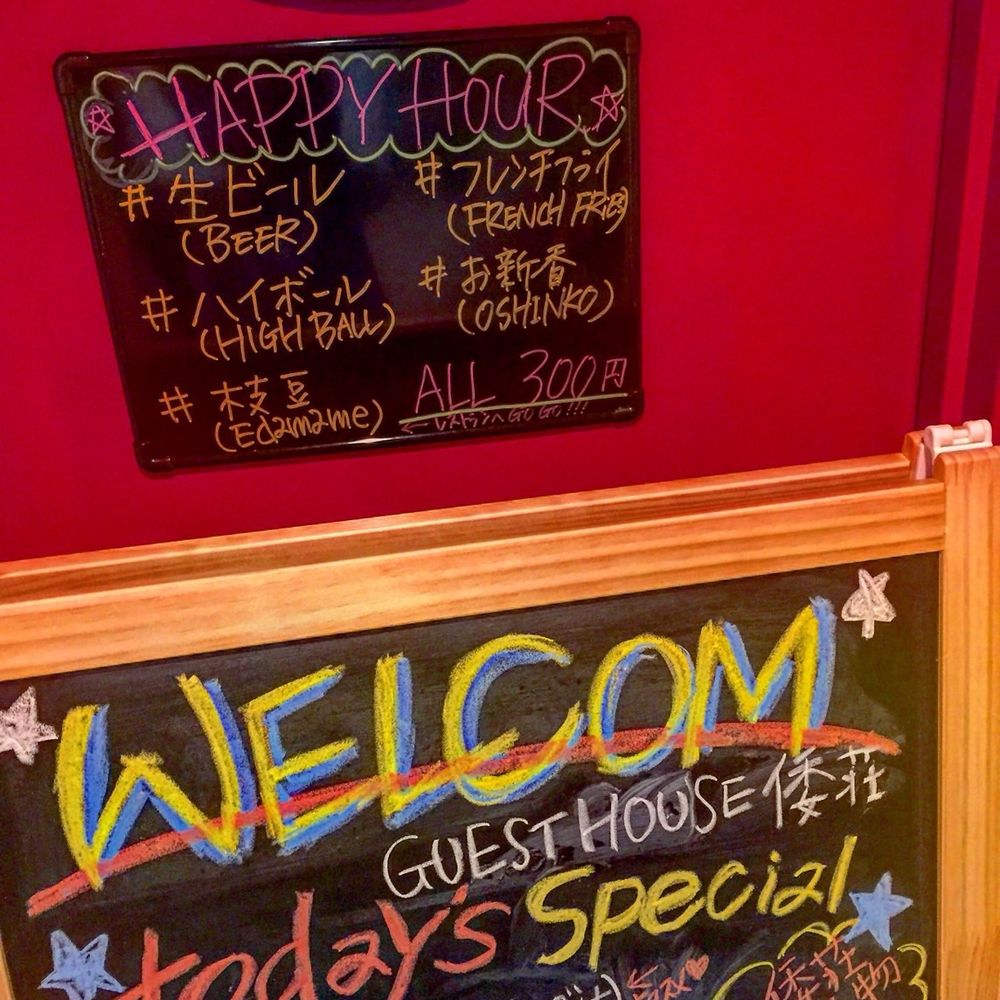 HAPPY HOUR
# 生ビール
(BEER)
# ハイボール
(HIGH BALL)
# 枝豆
(Edamame)
# フレンチフライ
(FRENCH FRIES)
# お新香
(OSHINKO)
ALL 300円
← レストランへ GO GO!!!
WELCOM
GUEST HOUSE 倭荘
today's Special